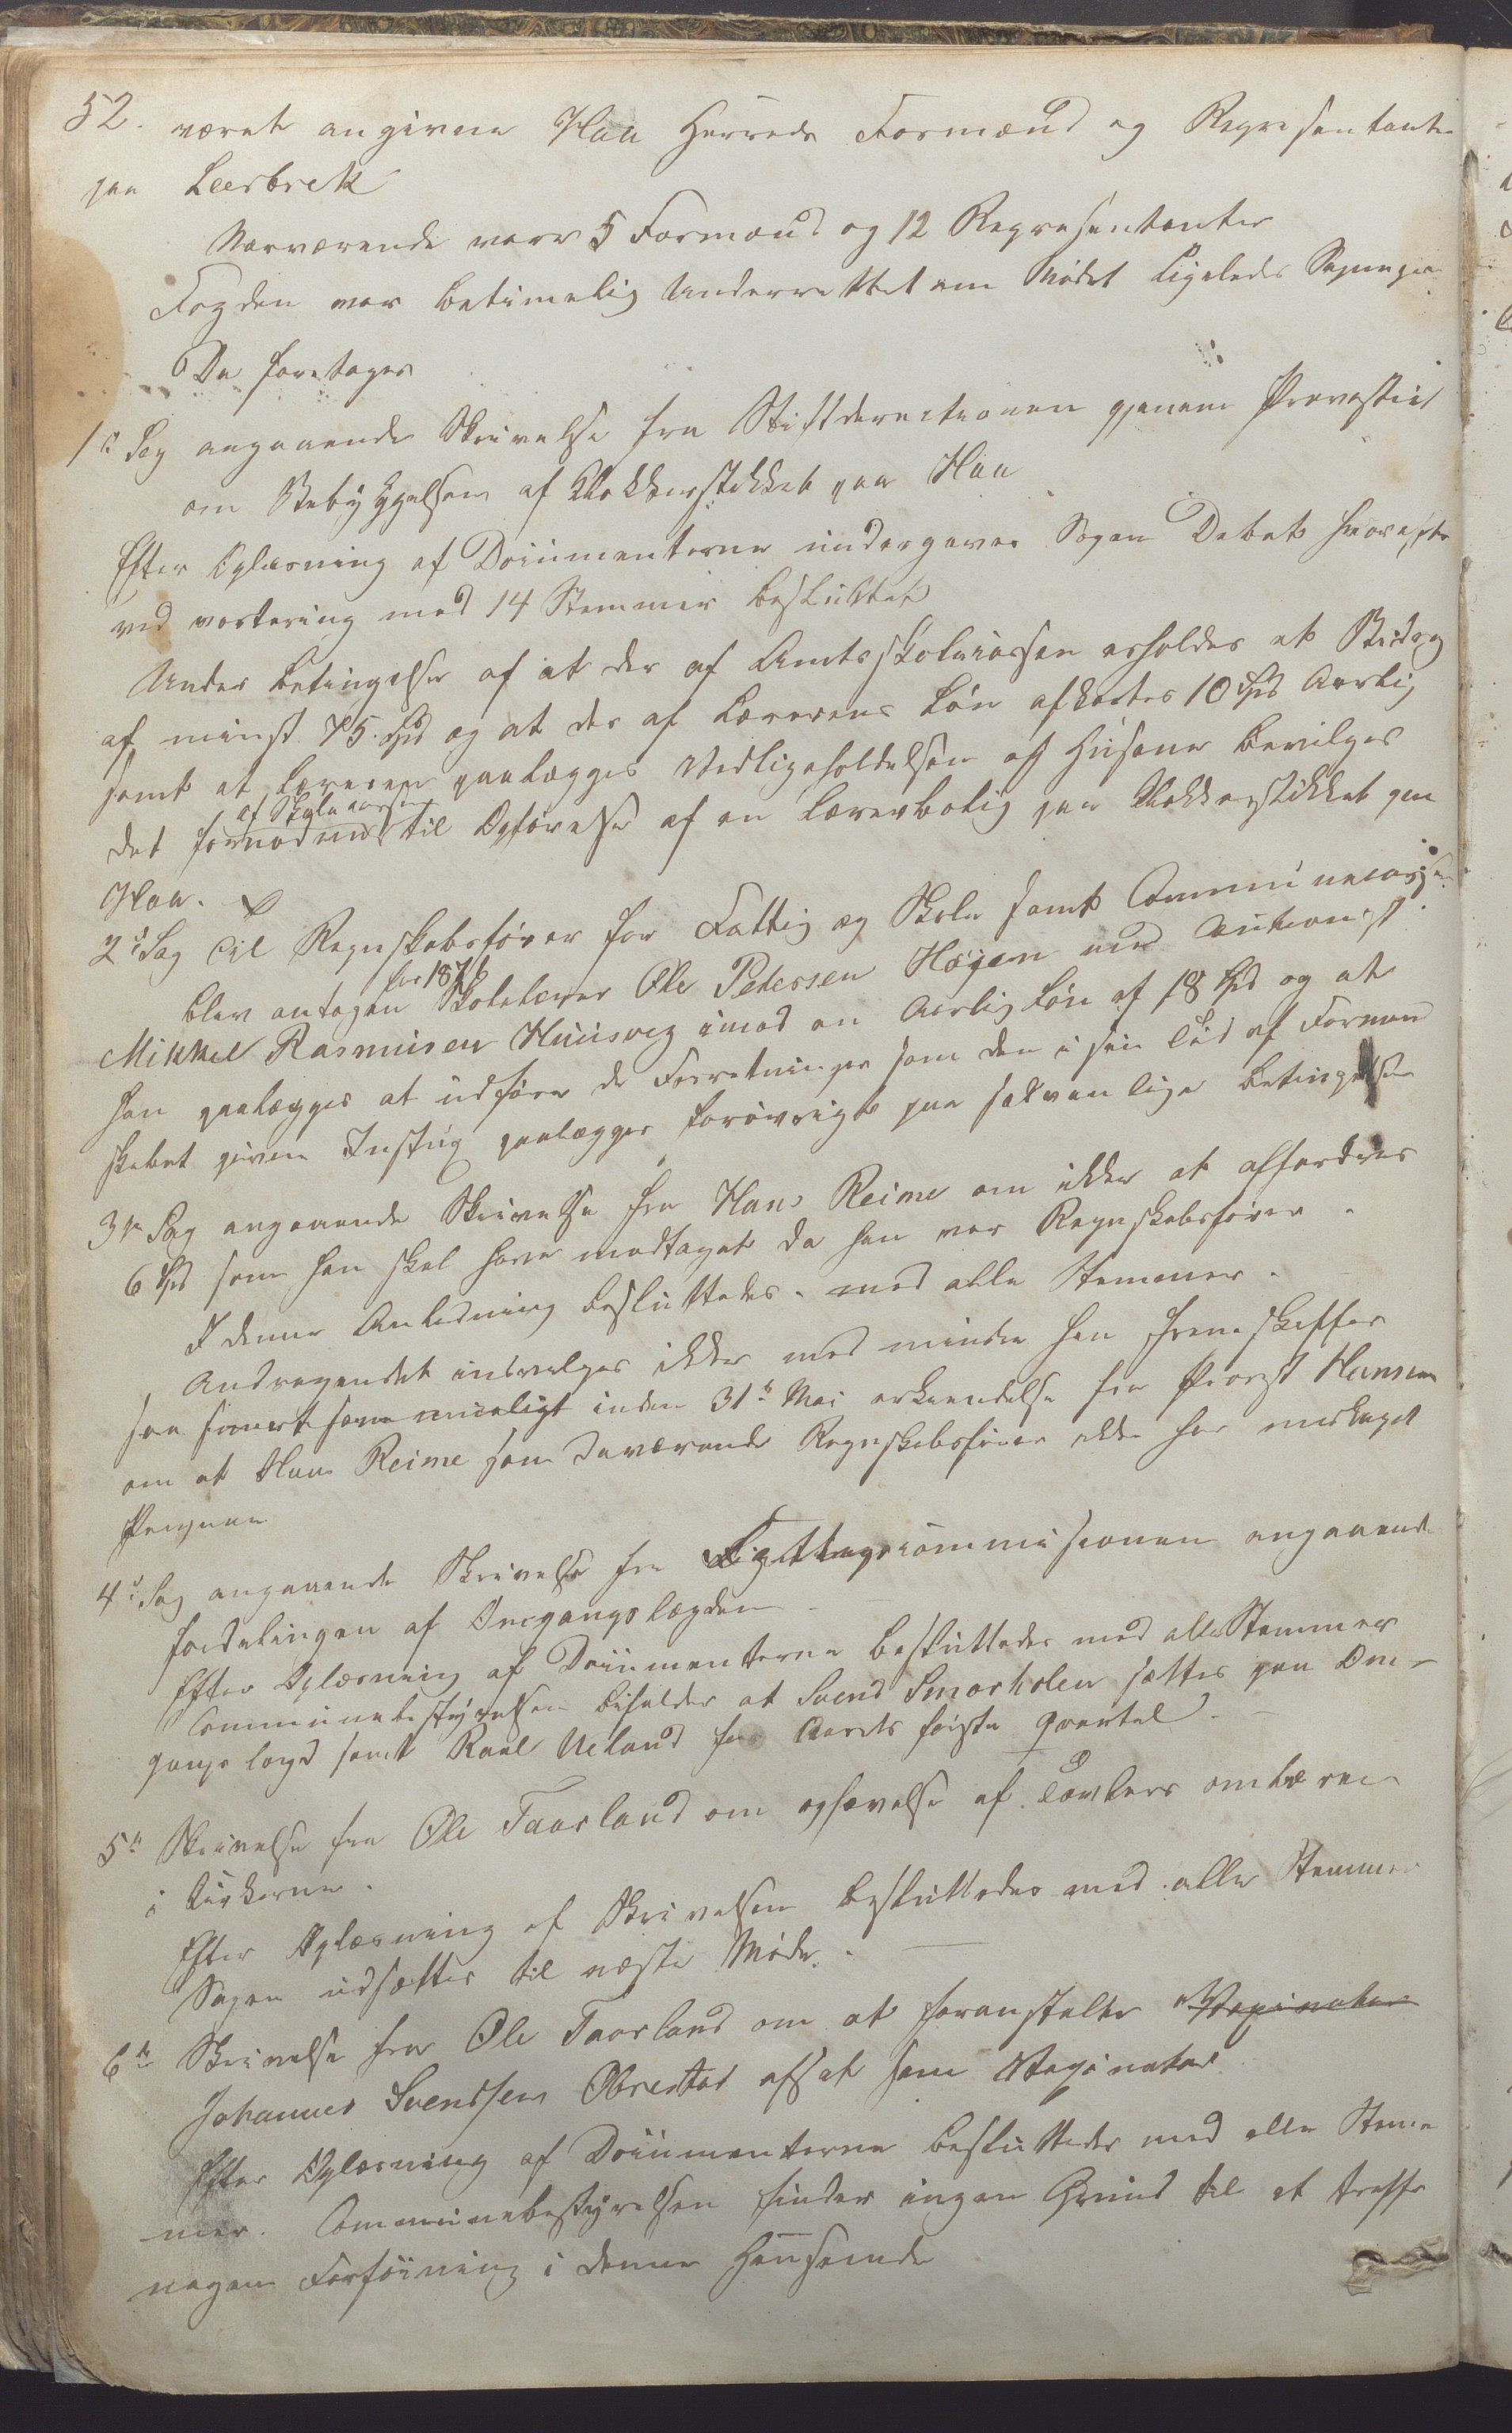 52. været angivne Haa Herreds Formænd og Representanter
paa Leerbrek
Nærværende vare 5 Formænd og 12 Representanter
Fogden var betimelig Underrettet om Mødet ligeledes
Da foretages
1te Sag angaaende Skrivelse fra Stiftderectionen gjenem Provstiet
om Bebyggelsen af Klokkerstikket paa Haa
Efter Oplæsning af Documenterne undergaves Sagen Debat hvorefter
ved vortering med 14 Stemmer besluttet
Under Betingelse af at der af Amtsskolecassen erholdes et Bidrag
af minst 75 Spd og at der af Lærerens Løn afkortes 10 Spd Aarlig
samt at Læreren paalægges Vedligeholdelsen af Husene bevilges
af Skolecassen
det fornødne til Opførelse af en Lærerbolig paa Klokkerstikket paa
Haa.
2d Sag Til Regnskabsfører for Fattig og Skole samt Communecassen
for 187
blev antagen Skolelærer Ole Petersen Høien med Cautionist
Mikkel Rasmusen Hunsvig imod en Aarlig Løn af 18 Spd og at
han paalægges at udføre de Forretninger som den i sin Tid af Forman
skabet givne Instrux paalægger forøvrigt paa sædvanlige Betingelser
3die Sag angaaende Skrivelse fra Hans Reime om ikke at affordres
6 Spd som han skal have modtaget da han var Regnskabsfører.
I denne Anledning besluttedes med alle Stemmer.
Andragendet indvilges ikke med mindre han fremskaffer
saa snart som mueligt inden 31te Mai erkjendelse fra Provst Hansen
om at Hans Reime som daværende Regnskabsfører ikke har modtaget
Pengene
4d Sag angaaende Skrivelse fra Fattigcommisionen angaaende
fordelingen af Omgangslægden
Efter Oplæsning af Documenterne besluttedes med alle Stemmer
Communebestyrelsen bifalder at Svend Smorholen sættes paa Om-
gangs lægd samt Rael Ueland for Aarets første Qvartal.
5te Skrivelse fra Ole Taarland om ophævelse af Tavlers ombæren
i Kirkerne.
Efter Oplæsning af Skrivelsen besluttedes med alle Stemmer
Sagen udsættes til næste Møde.
6te Skrivelse fra Ole Taarland om at foranstalte Vaxinatør
Johannes Svendsen Obrestad afsat som Vaxinatør
Efter Oplæsning af Documenterne besluttedes med alle Stem
mer. Communebestyrelsen finder ingen Grund til at træffe
nogen Forføining i denne Henseende